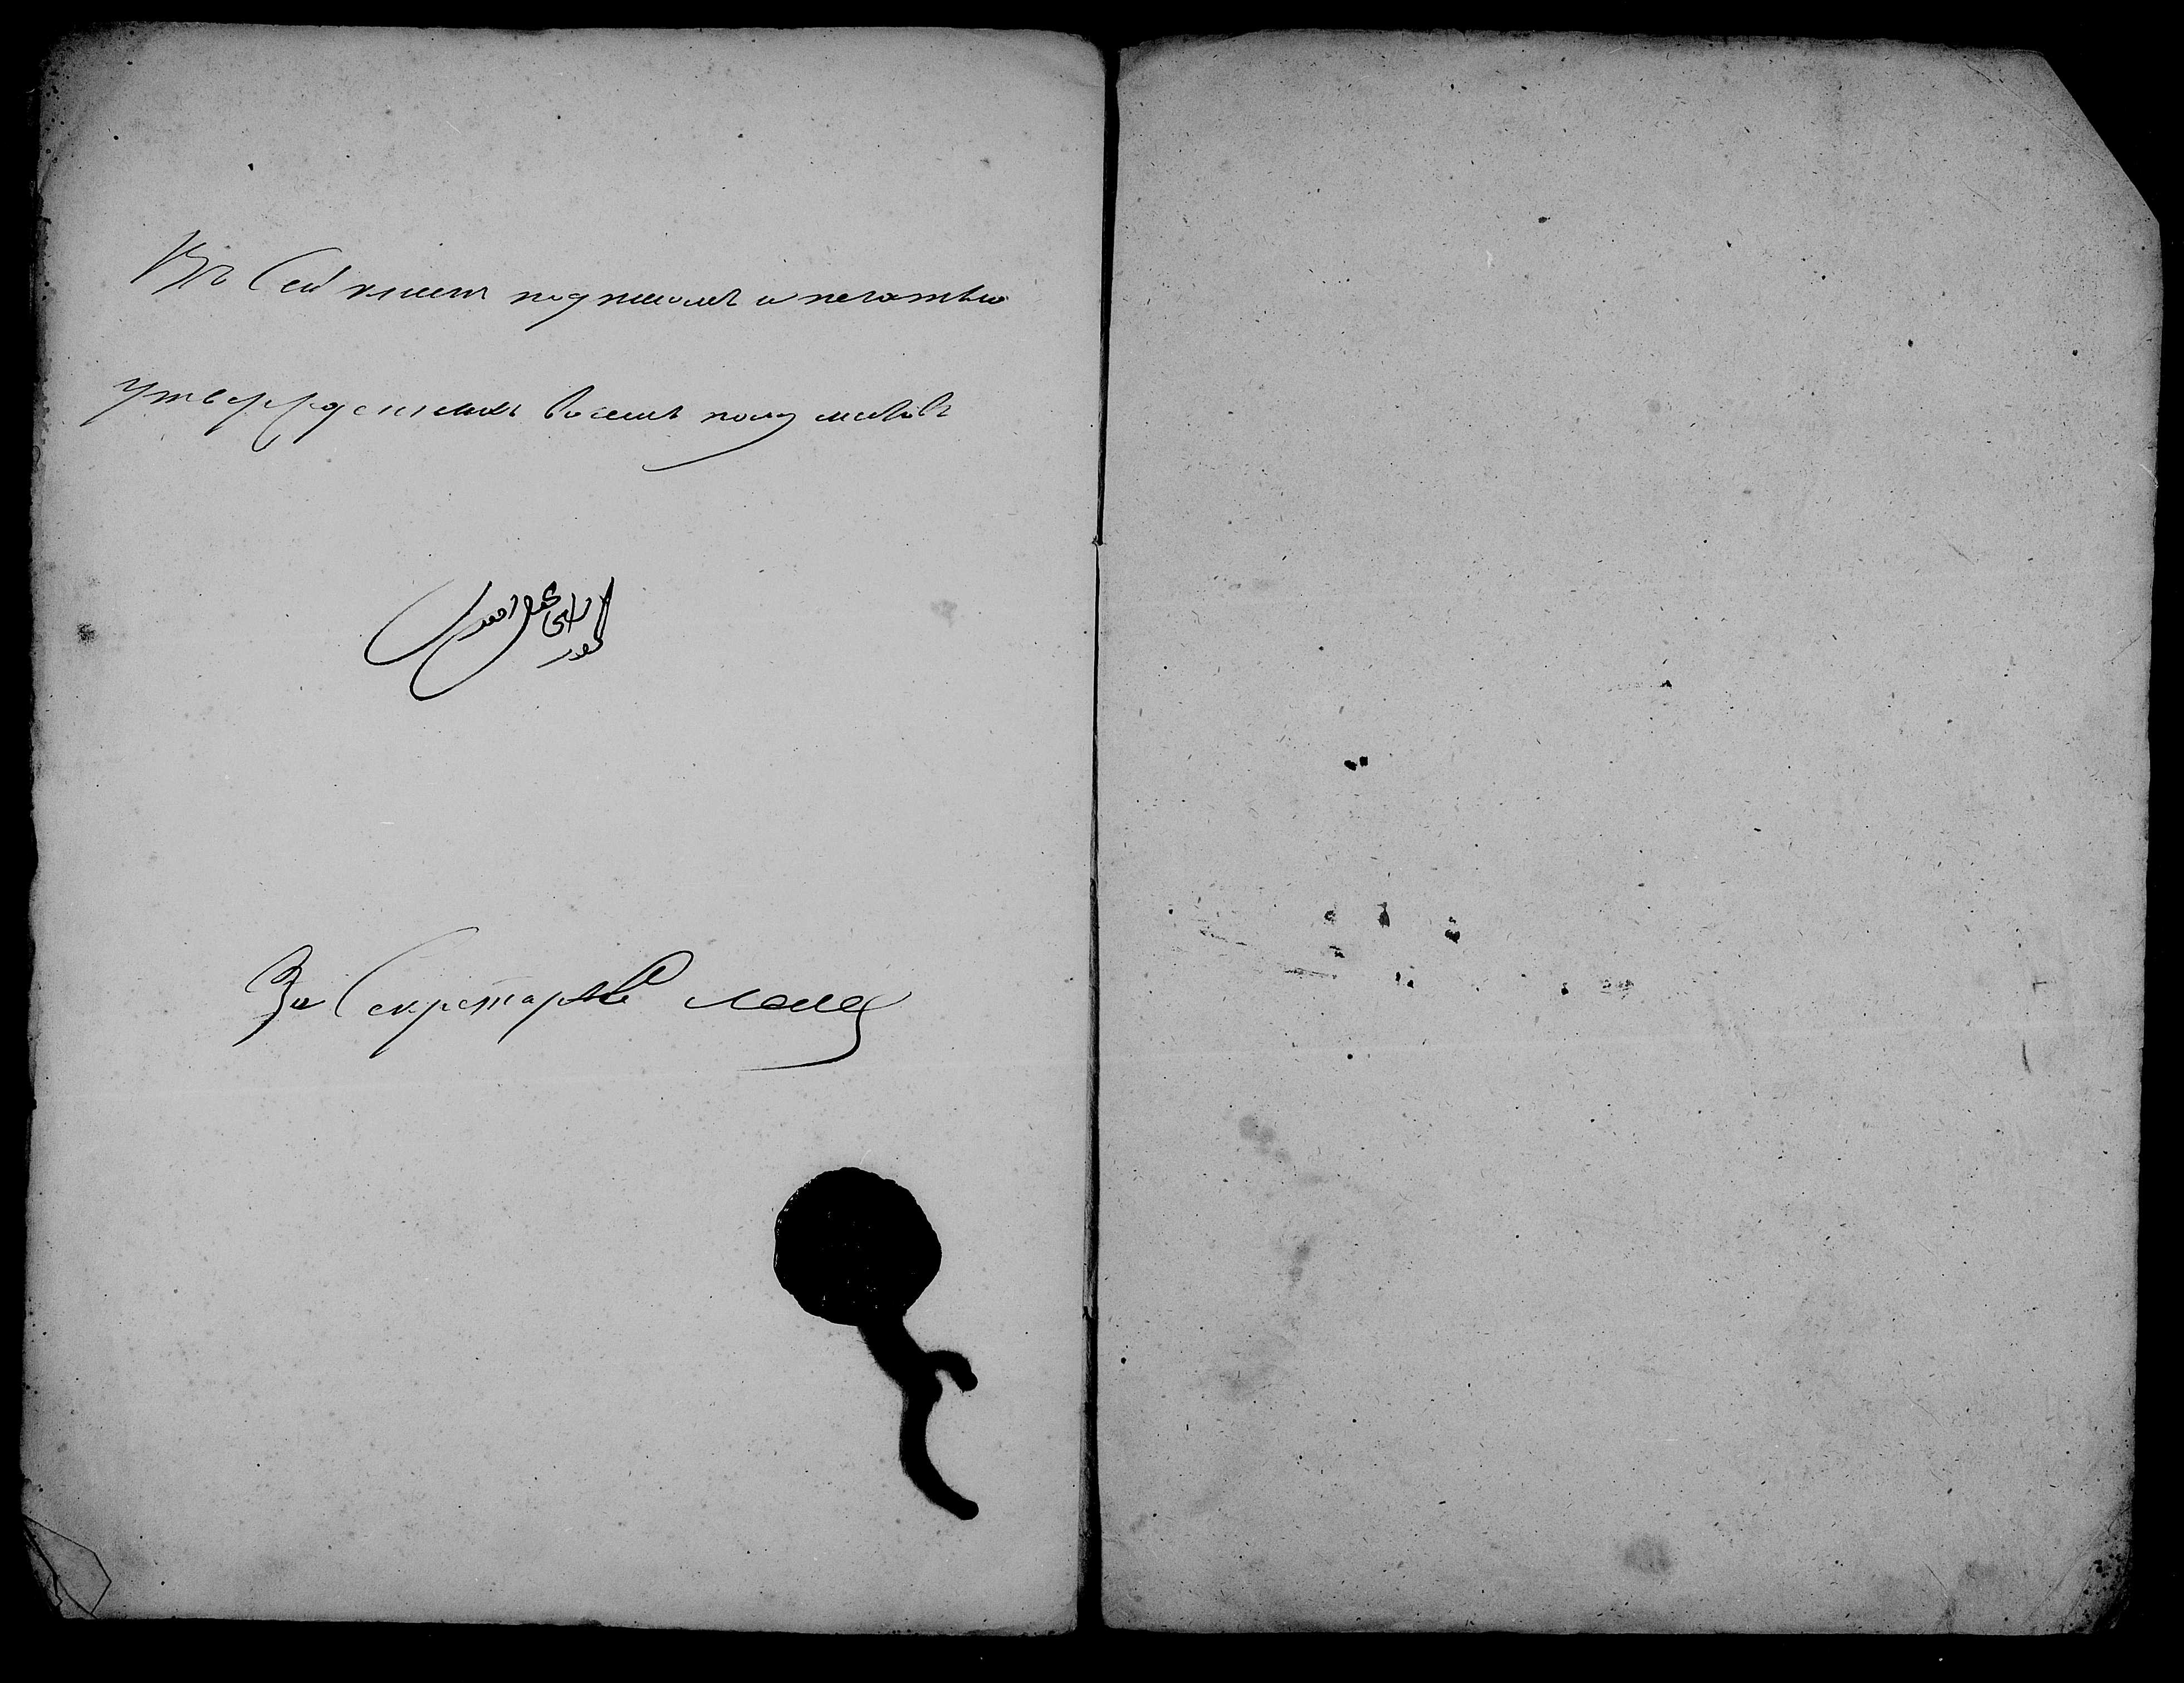 Въ Сей книгѣ подписомъ и печатью
утвержденныхъ восемь полулистовъ
За Секретаря